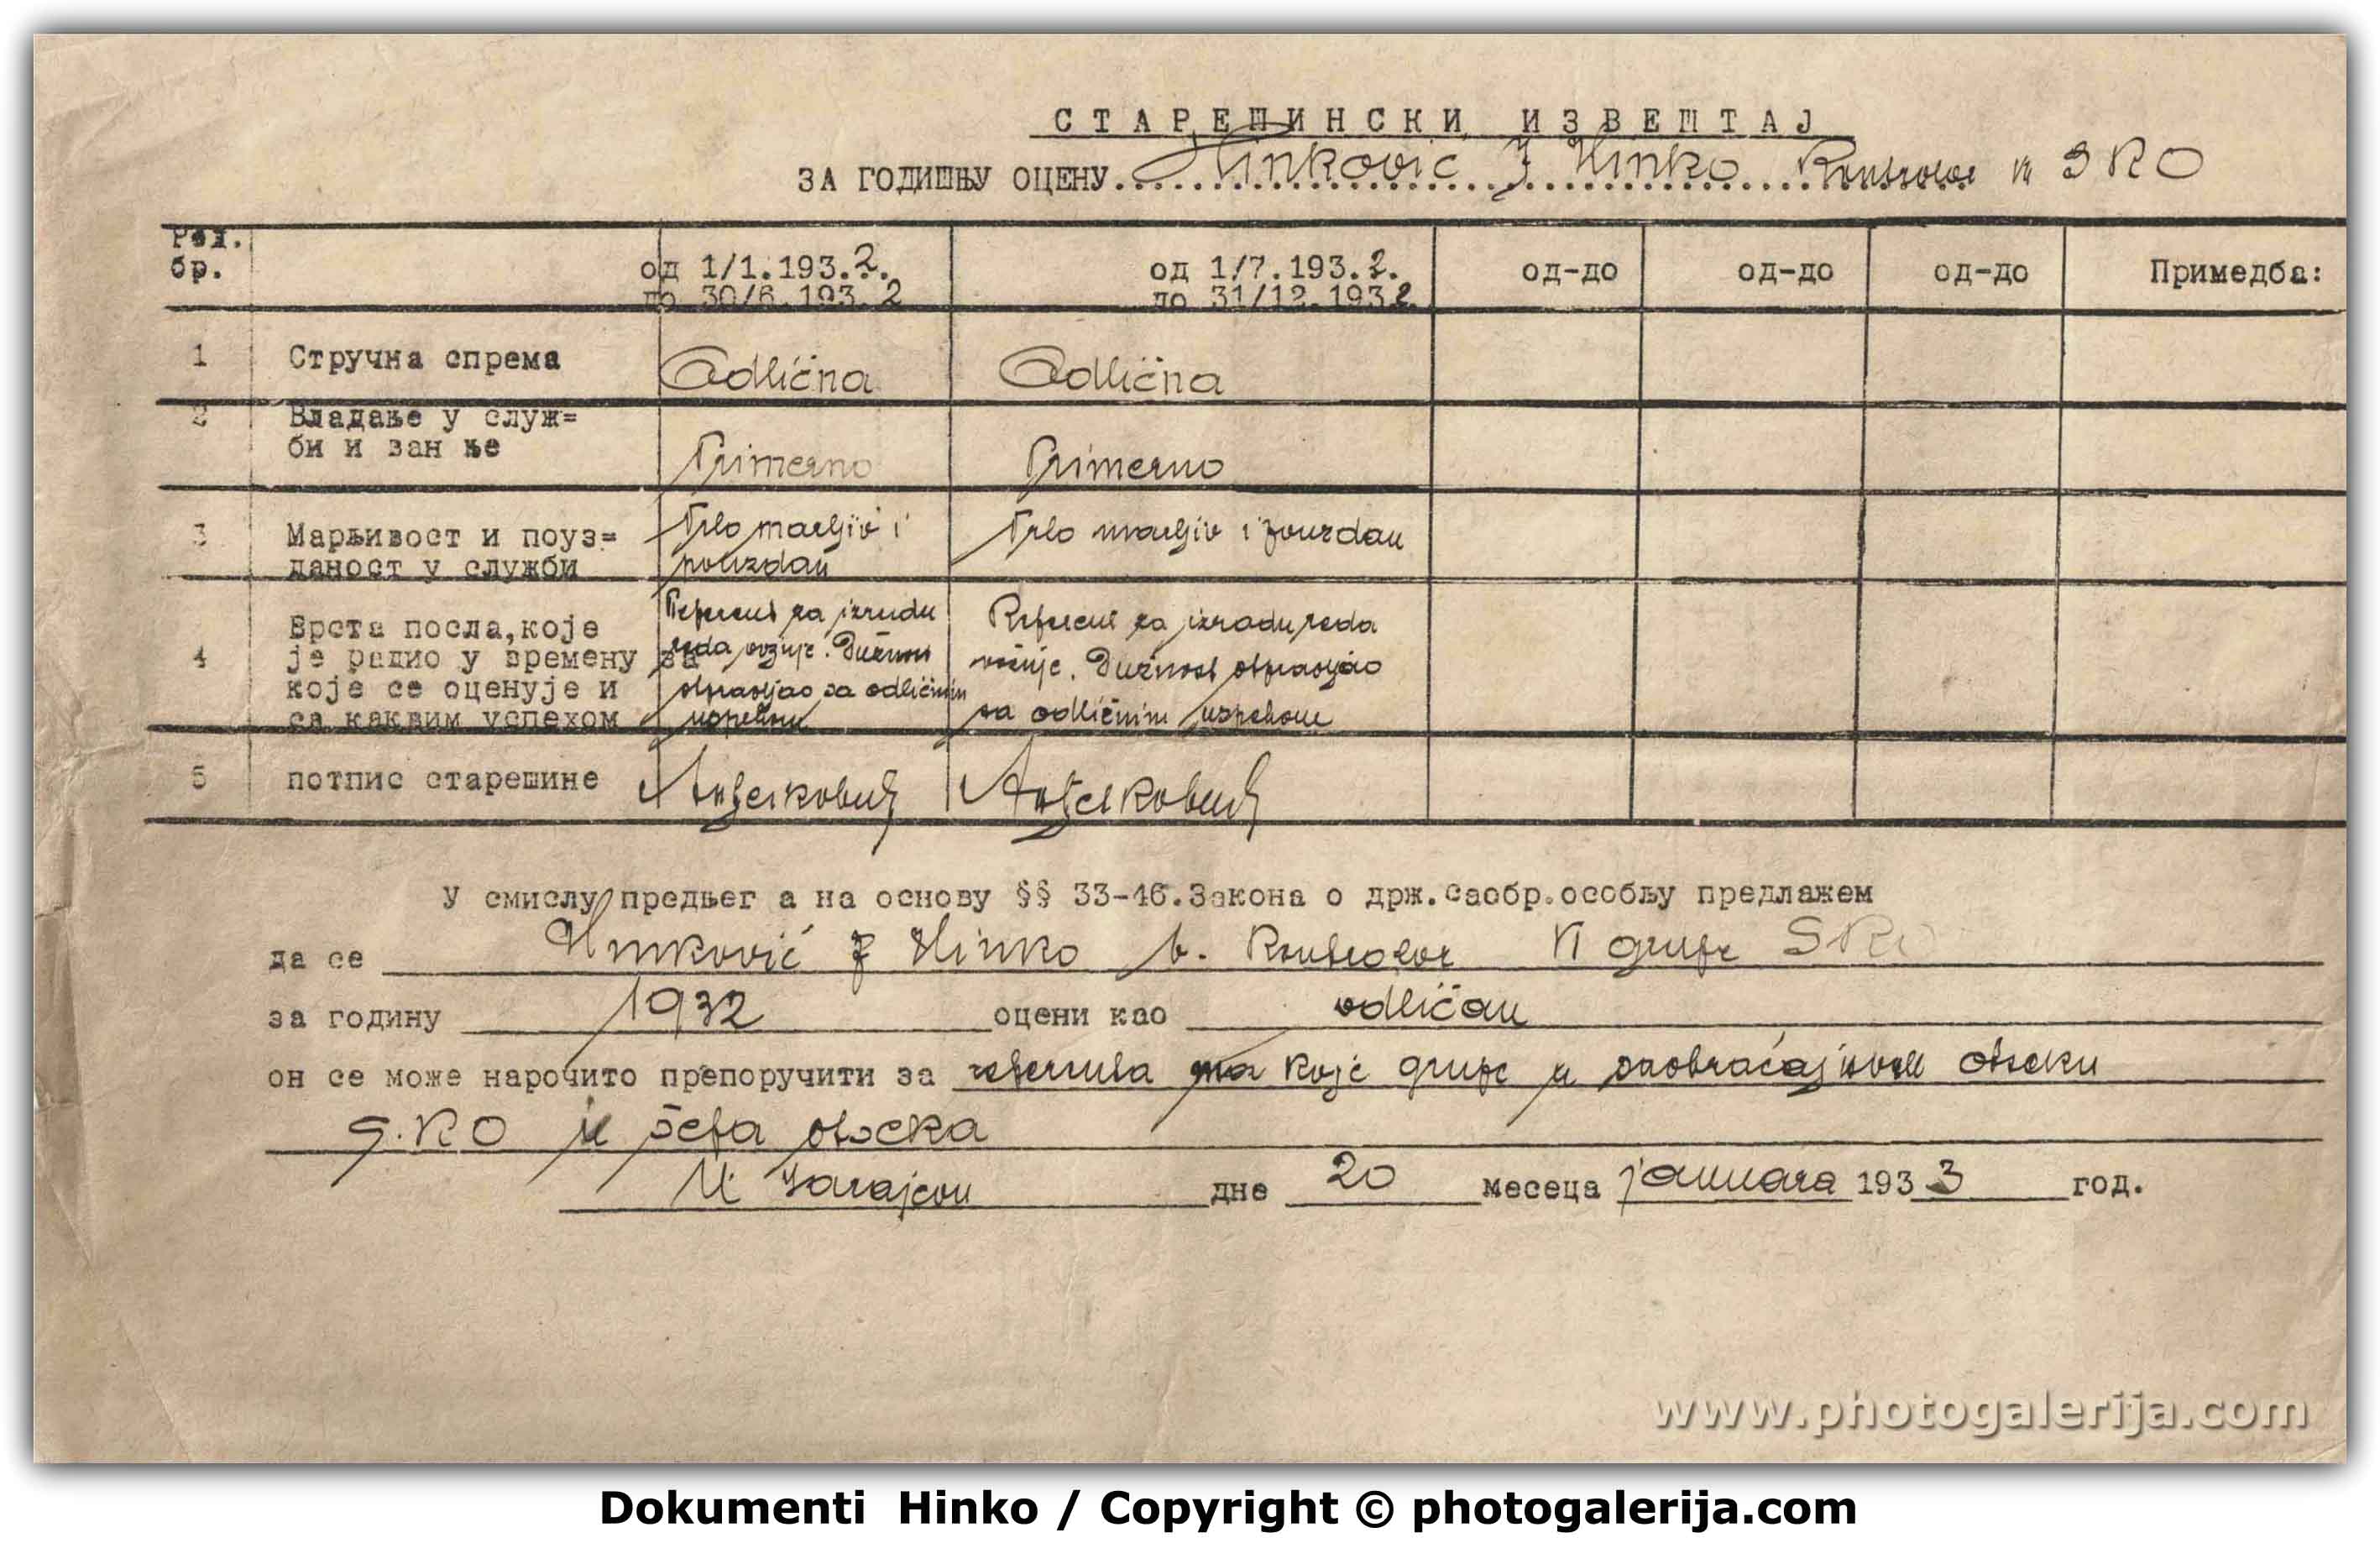 СТАРЕШИНСКИ ИЗВЕШТАЈ
ЗА ГОДИШЊУ ОЦЕНУ Hinković J Hinko Kontrolor u SRO
Ред. бр.
од 1/1.193.2. до 30/6.193.2
од 1/7.193.2. до 31/12.1932
од-до
од-до
од-до
Примедба:
1
Стручна спрема
Odlična
Odlična
2
Владање у служ=
би и ван ње
Primerno
Primerno
3
Марљивост и поуз=
даност у служби
Vrlo marljiv i
pouzdan
Vrlo marljiv i pouzdan
4
Врста посла,које
је радио у времену за
које се оценује и
са каквим успехом
Referent za izradu
reda vožnje. Dužnost
otpravljao sa odličnim
uspehom
Referent za izradu reda
vožnje. Dužnost otpravljao
sa odličnim uspehom
5
потпис старешине
У смислу предњег а на основу §§ 33-46.Закона о држ.саобр.особљу предлажем
да се Hinković J Hinko Kontrolor VI grupe SRO
за годину 1932 оцени као odličan
он се може нарочито препоручити за referenta ma koje grupe u saobraćajnom otseku
S.RO i šefa otseka
U Sarajevu дне 20 месеца januara 1933 год.
www.photogalerija.com
Dokumenti Hinko / Copyright © photogalerija.com